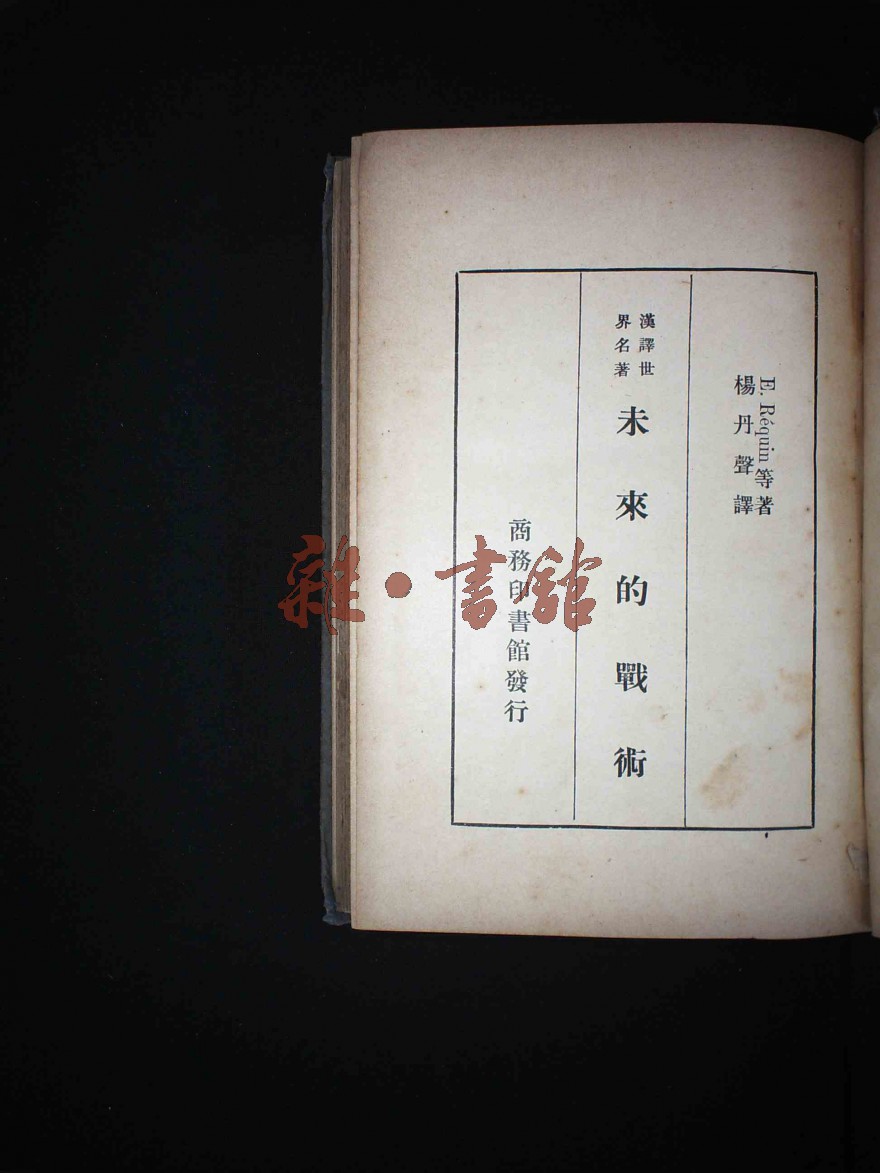 E. Réquin 等著
楊丹聲譯
漢譯世
界名著
未來的戰術
商務印書館發行
雜·書館